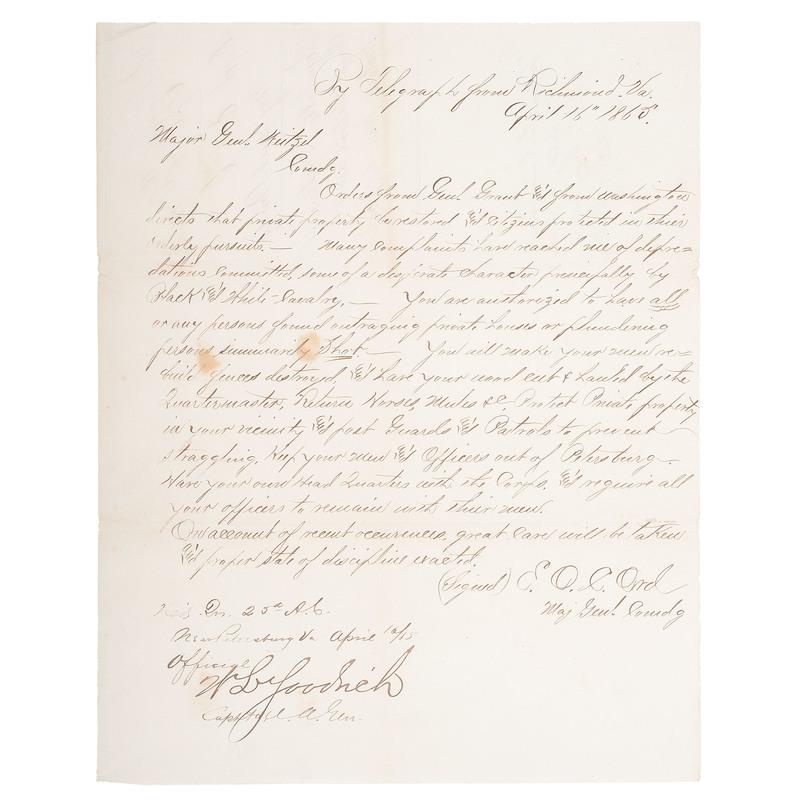 By Telegraph from Richmond. Va.
April 16" 1865.
Major Genl. Weitzel
Comdg.
Orders from Genl. Grant & from Washington
directs that private property be restored & citizens protected in their
orderly pursuits. — Many complaints have reached me of depre=
dations committed, some of a desperate character principally by
Black & White Cavalry. — You are authorized to have all
or any persons found outraging private houses or plundering
persons summarily Shot — You will make your men re=
build fences destroyed, & have your wood cut & hauled by the
Quartermaster, Return Horses, Mules &c. Protect Private property
in your vicinity & post Guards & Patrols to prevent
straggling. Keep your men & Officers out of Petersburg.
Have your own Head Quarters with the Corps. & require all
your officers to remain with their men.
On account of recent occurrences, great care will be taken
& proper state of discipline exacted.
(Signed) E. O. C. Ord
Maj Genl. Comdg
Hd. Qrs. 25th A. C.
Near Petersburg Va April 16/65
Official
W L Goodrich
Capt & A. A. Gen.